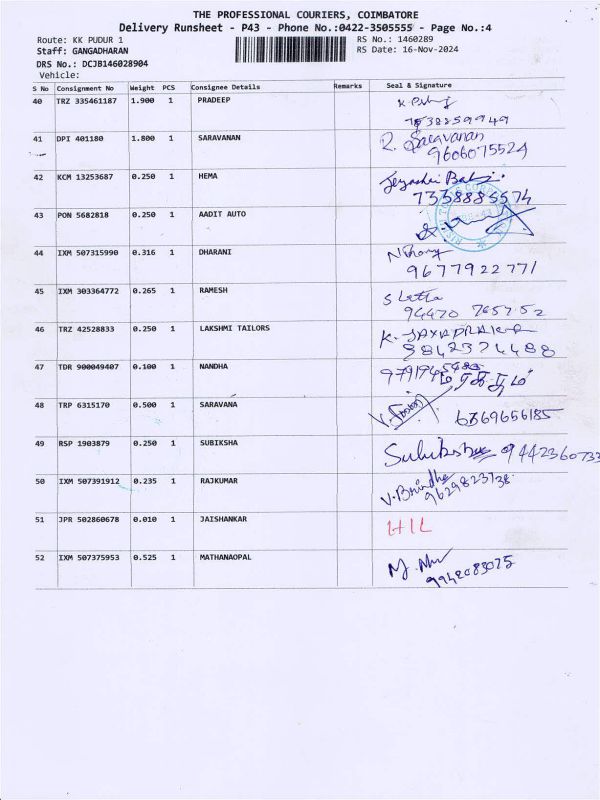 THE PROFESSIONAL COURIERS, COIMBATORE
Delivery Runsheet - P43 - Phone No.:0422-3505555 - Page No.:4
Route: KK PUDUR 1 RS No.: 1460289
Staff: GANGADHARAN RS Date: 16-Nov-2024
DRS No.: DCJB146028904
Vehicle:
S No Consignment No Weight PCS Consignee Details Remarks Seal & Signature
40 TRZ 335461187 1.900 1 PRADEEP
41 DPI 401180 1.800 1 SARAVANAN R. Saravanan
9606075524
42 KCM 13253687 0.250 1 HEMA
7338885574
43 PON 5682818 0.250 1 AADIT AUTO
44 IXM 507315990 0.316 1 DHARANI
9677922771
45 IXM 303364772 0.265 1 RAMESH S Latha
94470 765752
46 TRZ 42528833 0.250 1 LAKSHMI TAILORS K. JAYAPRAKASH
9842374488
47 TDR 900049407 0.100 1 NANDHA
48 TRP 6315170 0.500 1 SARAVANA
6369656185
49 RSP 1903879 0.250 1 SUBIKSHA Subiksha 9442360733
50 IXM 507391912 0.235 1 RAJKUMAR V. Brindha
9629823738
51 JPR 502860678 0.010 1 JAISHANKAR HIL
52 IXM 507375953 0.525 1 MATHANAOPAL
9942083025